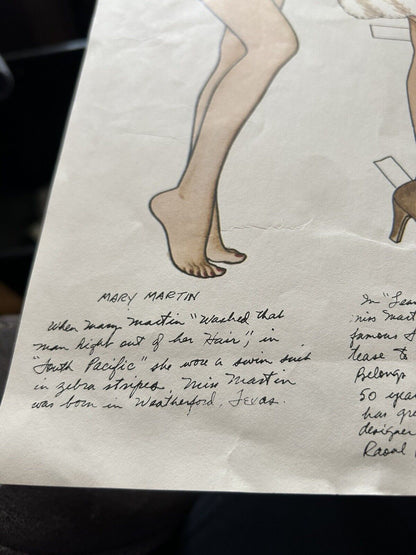 MARY MARTIN
When Mary Martin "Washed that
man Right out of her Hair", in
"South Pacific" she wore a swim suit
in zebra stripes. Miss Martin
was born in Weatherford, Texas.
In "Lea
miss Mart
famous
lease to
Belongs
50 yea
has gre
designer
Raoul